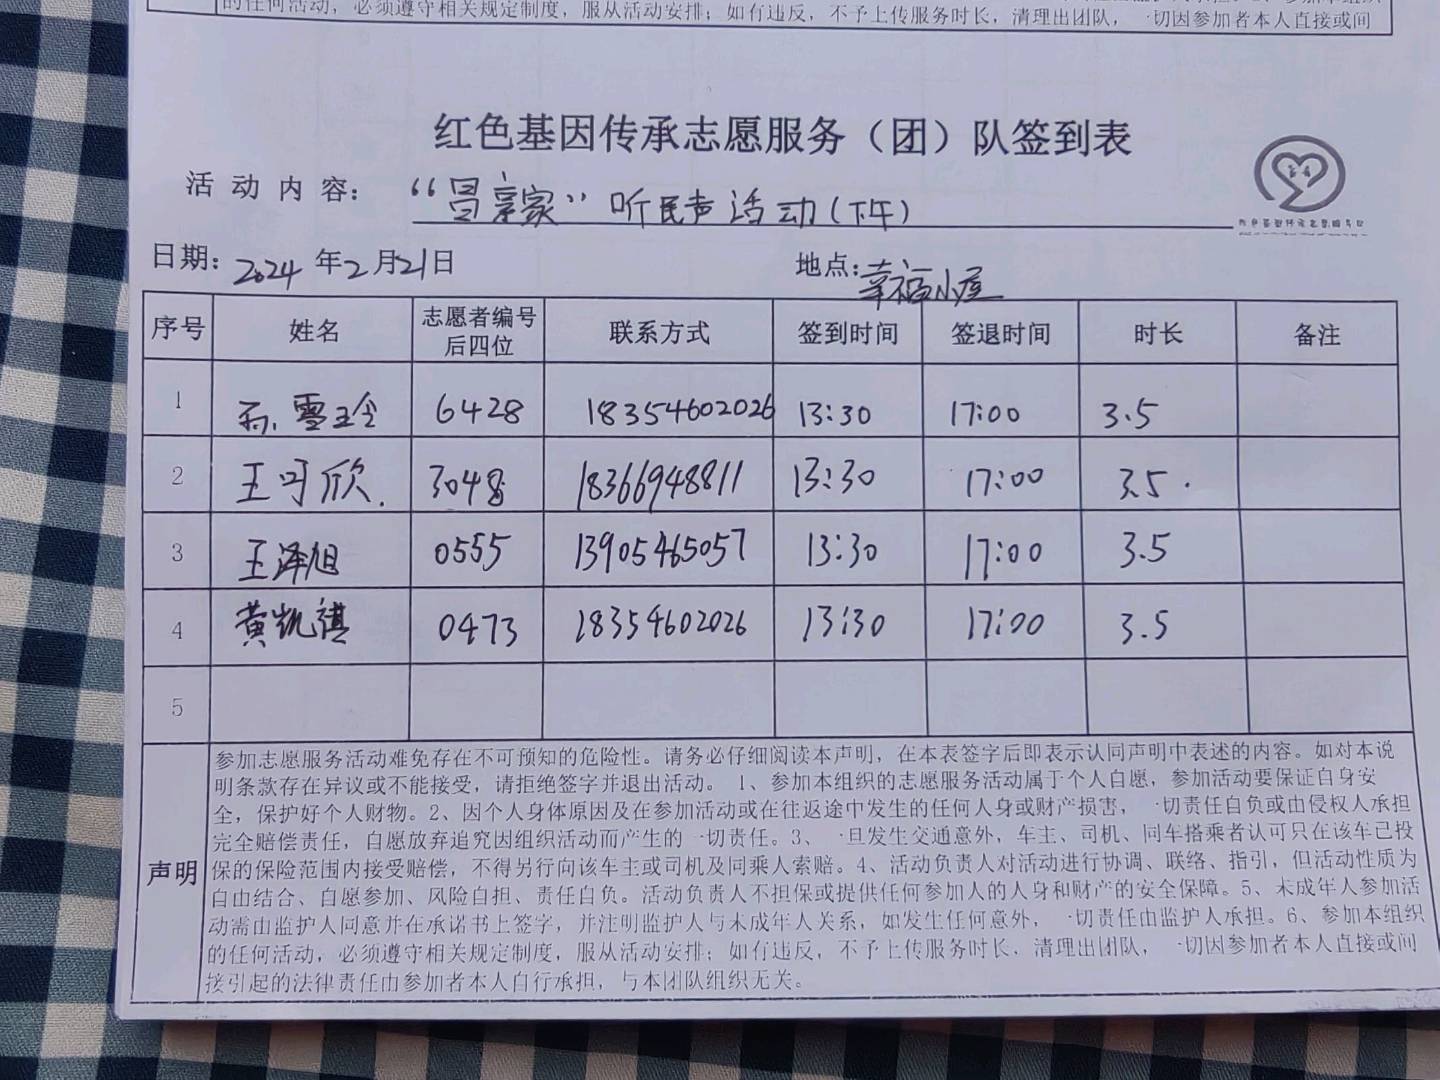 的任何活动，必须遵守相关规定制度，服从活动安排；如有违反，不予上传服务时长，清理出团队，一切因参加者本人直接或间
红色基因传承志愿服务（团）队签到表
活动内容： “冒享家”听民声活动（下午）
日期：2024年2月21日 地点：幸福小屋
序号 姓名 志愿者编号后四位 联系方式 签到时间 签退时间 时长 备注
1 雪玲 6428 18354602026 13:30 17:00 3.5
2 王可欣. 3048 18366948811 13:30 17:00 3.5.
3 王泽旭 0555 13905465057 13:30 17:00 3.5
4 黄凯祺 0473 18354602026 13:30 17:00 3.5
5
声明
参加志愿服务活动难免存在不可预知的危险性。请务必仔细阅读本声明，在本表签字后即表示认同声明中表述的内容。如对本说
明条款存在异议或不能接受，请拒绝签字并退出活动。 1、参加本组织的志愿服务活动属于个人自愿，参加活动要保证自身安
全，保护好个人财物。2、因个人身体原因及在参加活动或在往返途中发生的任何人身或财产损害，一切责任自负或由侵权人承担
完全赔偿责任，自愿放弃追究因组织活动而产生的一切责任。3、一旦发生交通意外，车主、司机、同车搭乘者认可只在该车已投
保的保险范围内接受赔偿，不得另行向该车主或司机及同乘人索赔。4、活动负责人对活动进行协调、联络、指引，但活动性质为
自由结合、自愿参加、风险自担、责任自负。活动负责人不担保或提供任何参加人的人身和财产的安全保障。5、未成年人参加活
动需由监护人同意并在承诺书上签字，并注明监护人与未成年人关系，如发生任何意外，一切责任由监护人承担。6、参加本组织
的任何活动，必须遵守相关规定制度，服从活动安排；如有违反，不予上传服务时长，清理出团队，一切因参加者本人直接或间
接引起的法律责任由参加者本人自行承担，与本团队组织无关。